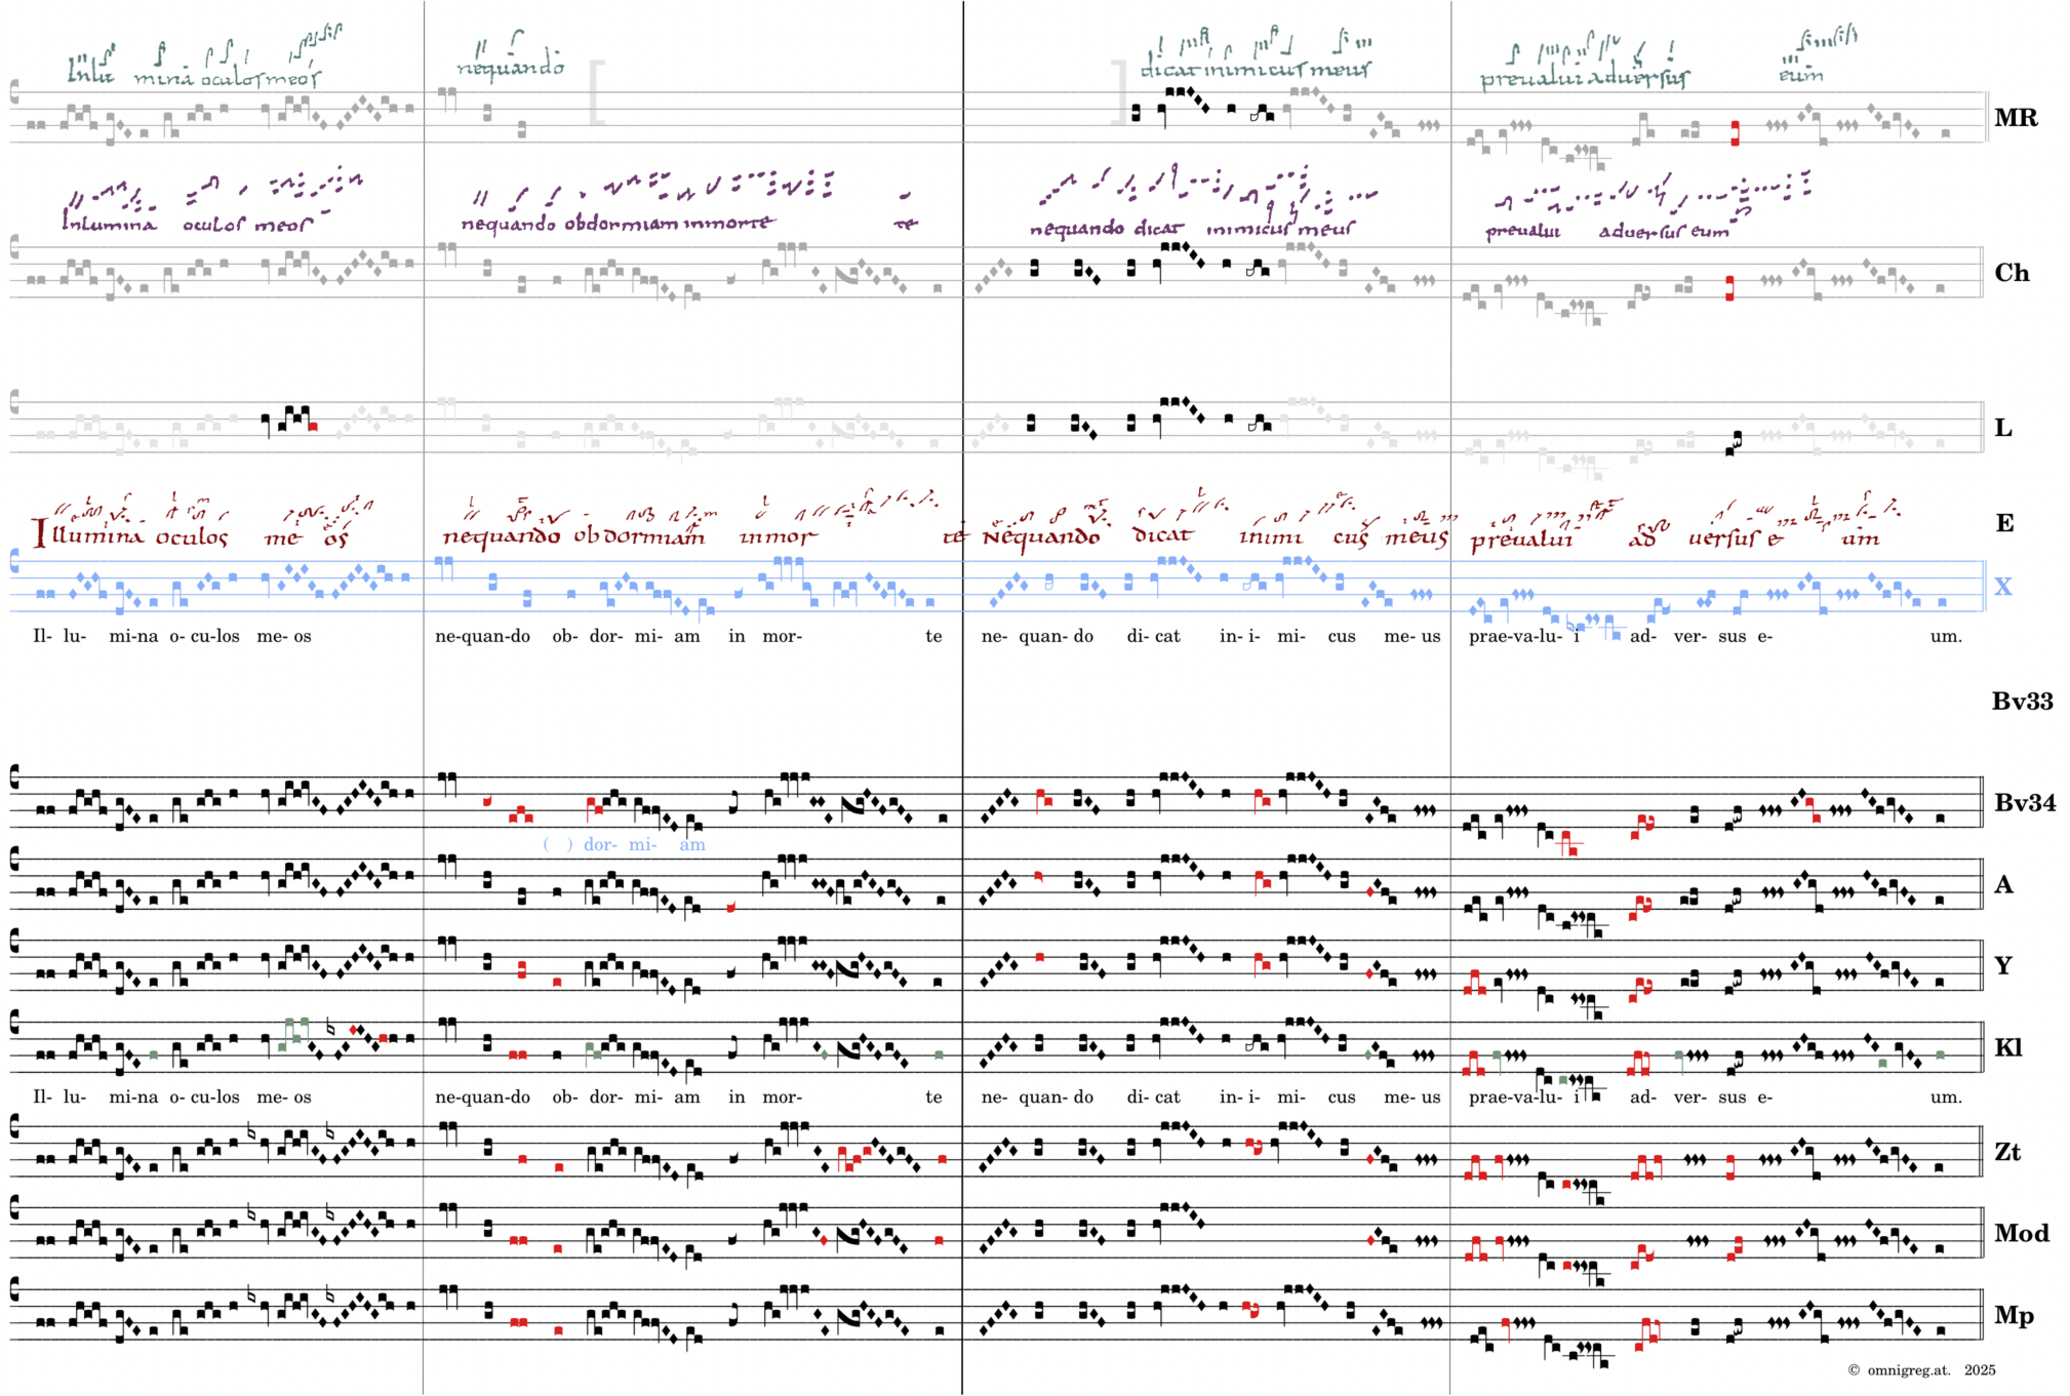 Inlu mina oculos meos nequando dicat inimicus meus preualui aduersus eum
MR
Inlumina oculos meos nequando obdormiam inmorte te nequando dicat inimicus meus preualui aduersus eum
Ch
L
Illumina oculos me os nequando obdormiam inmor te Nequando dicat inimi cus meus preualui ad uersus e um
E
X
Il- lu- mi-na o- cu-los me- os ne-quan-do ob- dor- mi- am in mor- te ne- quan- do di- cat in- i- mi- cus me- us prae-va-lu- i ad- ver- sus e- um.
Bv33
Bv34
( ) dor- mi- am
A
Y
Kl
Il- lu- mi-na o- cu-los me- os ne-quan-do ob- dor- mi- am in mor- te ne- quan- do di- cat in- i- mi- cus me- us prae-va-lu- i ad- ver- sus e- um.
Zt
Mod
Mp
© omnigreg.at. 2025